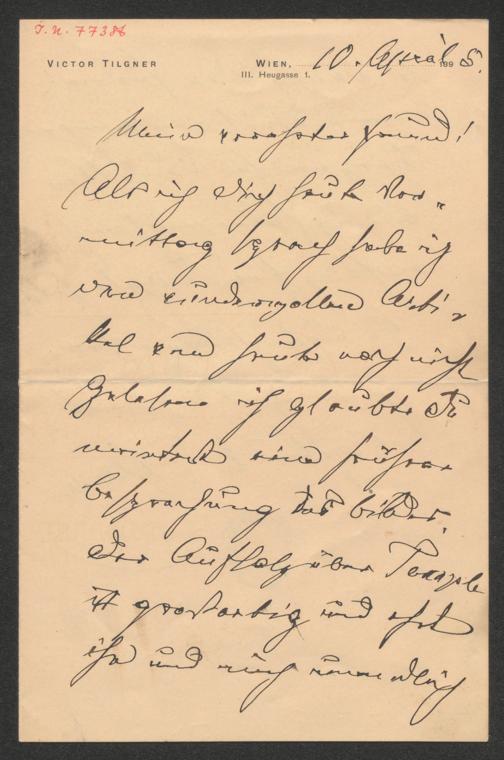 I.N. 77386
VICTOR TILGNER
WIEN, 10. April 1895.
III. Heugasse 1.
Mein verehrter Freund!
Als ich Dich heute Vor-
mittag sprach habe ich
den wundervollen Arti-
kel von heute noch nicht
gelesen ich glaubte Du
meintest eine frühere
besprechung des bildes.
Der Aufsatz über Temple
ist großartig und ehrt
ihn und mich unendlich